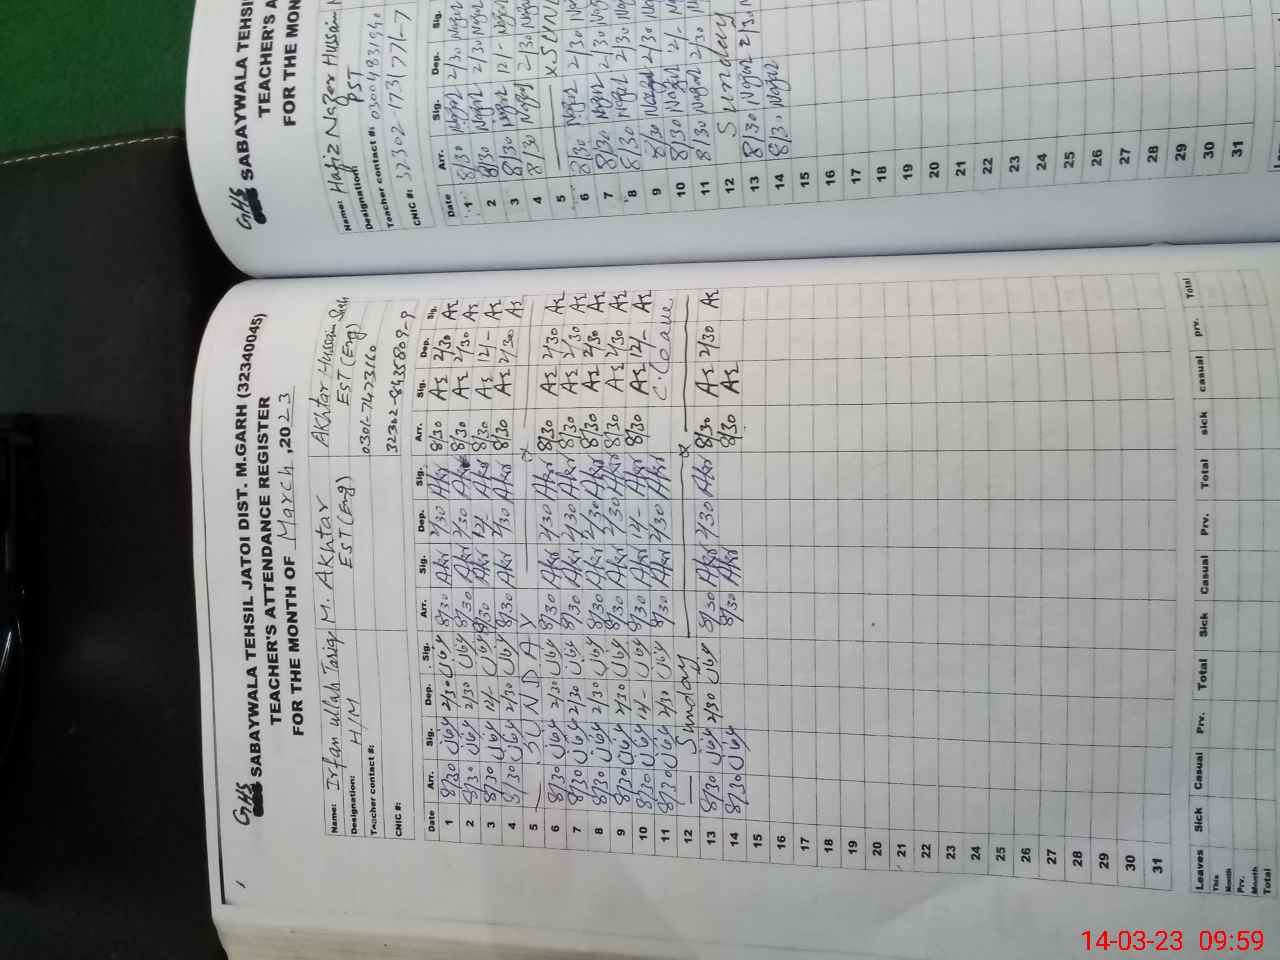 GHS SABAYWALA TEHSIL JATOI DIST. M.GARH (32340045)
TEACHER'S ATTENDANCE REGISTER
FOR THE MONTH OF March, 2023
Name: Irfan ullah Tariq M. Akhtar Akhtar Hussain Shah
Designation: H/M EST (Eng) EST (Eng)
Teacher contact #: 0301-7423160
CNIC #: 32302-8435809-9
Date Arr. Sig. Dep. Sig. Arr. Sig. Dep. Sig. Arr. Sig. Dep. Sig.
1 8/30 2/30 8/30 Akr 2/30 Akr 8/30 As 2/30 As
2 8/30 2/30 8/30 Akr 2/30 Akr 8/30 As 2/30 As
3 8/30 12/- 8/30 Akr 12/- Akr 8/30 As 12/- As
4 8/30 2/30 8/30 Akr 2/30 Akr 8/30 As 2/30 As
5 SUNDAY
6 8/30 2/30 8/30 Akr 2/30 Akr 8/30 As 2/30 As
7 8/30 2/30 8/30 Akr 2/30 Akr 8/30 As 2/30 As
8 8/30 2/30 8/30 Akr 2/30 Akr 8/30 As 2/30 As
9 8/30 2/30 8/30 Akr 2/30 Akr 8/30 As 2/30 As
10 8/30 12/- 8/30 Akr 12/- Akr 8/30 As 12/- As
11 8/30 2/30 8/30 Akr 2/30 Akr C. Leave
12 Sunday
13 8/30 2/30 8/30 Akr 2/30 Akr 8/30 As 2/30 As
14 8/30 8/30 Akr 8/30 As
15
16
17
18
19
20
21
22
23
24
25
26
27
28
29
30
31
Leaves Sick Casual Prv. Total Sick Casual Prv. Total sick casual prv. Total
This Month
Prv. Month
Total
GHS SABAYWALA TEHSI
TEACHER'S A
FOR THE MON
Name: Hafiz Nazar Hussain
Designation: PST
Teacher contact #:
CNIC #:
Date Arr. Sig. Dep. Sig.
1 8/30 2/30
2 8/30 2/30
3 8/30 12/-
4 8/30 2/30
5
6 8/30 2/30
7 8/30 2/30
8 8/30 2/30
9 8/30 2/30
10 8/30 12/-
11 8/30 2/30
12 Sunday
13 8/30 2/30
14 8/30
15
16
17
18
19
20
21
22
23
24
25
26
27
28
29
30
31
14-03-23 09:59